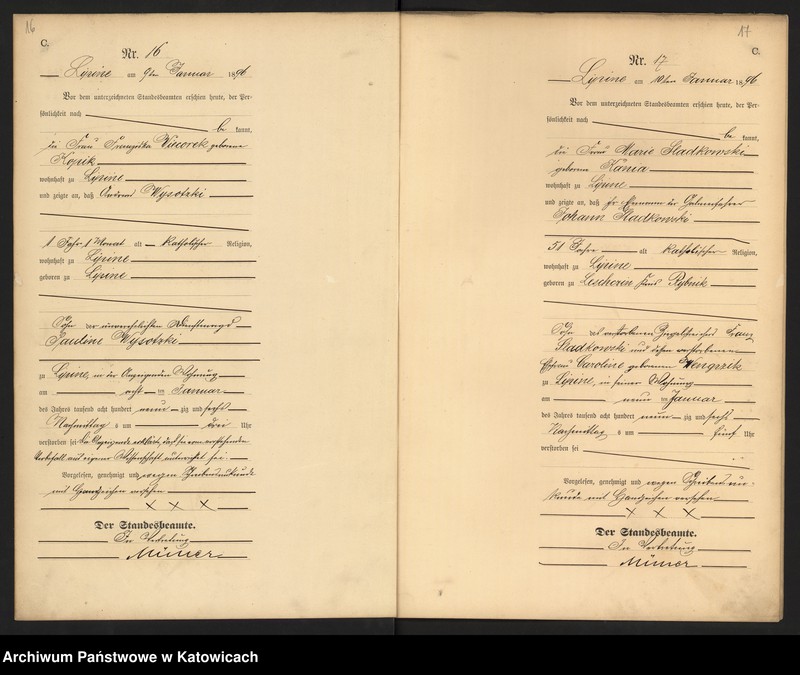 16
C.
Nr. 16
Lipine am 9ten Januar 1896
Vor dem unterzeichneten Standesbeamten erschien heute, der Per-
sönlichkeit nach
be kannt,
die Frau Franziska Wieczorek geborene
Kopik
wohnhaft zu Lipine
und zeigte an, daß Andreas Wysotzki
1 Jahr 1 Monat alt katholischer Religion,
wohnhaft zu Lipine
geboren zu Lipine
Sohn der unverehelichten Dienstmagd
Pauline Wysotzki
zu Lipine, in der Anzeigenden Wohnung
am acht ten Januar
des Jahres tausend acht hundert neun zig und sechs
Nachmittag s um drei Uhr
verstorben sei. Die Anzeigende erklärte, daß sie von vorstehendem
Sterbefall aus eigener Wissenschaft unterrichtet sei.
Vorgelesen, genehmigt und wegen Schreibensunkunde
mit Handzeichen versehen
x x x
Der Standesbeamte.
In Vertretung
17
C.
Nr. 17
Lipine am 10ten Januar 1896
Vor dem unterzeichneten Standesbeamten erschien heute, der Per-
sönlichkeit nach
be kannt,
die Frau Marie Stadkowski
geborene Kania
wohnhaft zu Lipine
und zeigte an, daß ihr Ehemann der
Johann Stadkowski
51 Jahre alt katholischer Religion,
wohnhaft zu Lipine
geboren zu Leschczin Kreis Rybnik
Sohn des verstorbenen Franz
Stadkowski und dessen verstorbenen
Ehefrau Caroline geborenen Wengrzik
zu Lipine, in seiner Wohnung
am neun ten Januar
des Jahres tausend acht hundert neun zig und sechs
Nachmittag s um fünf Uhr
verstorben sei
Vorgelesen, genehmigt und wegen Schreibens un-
kunde mit Handzeichen versehen
x x x
Der Standesbeamte.
In Vertretung
Archiwum Państwowe w Katowicach